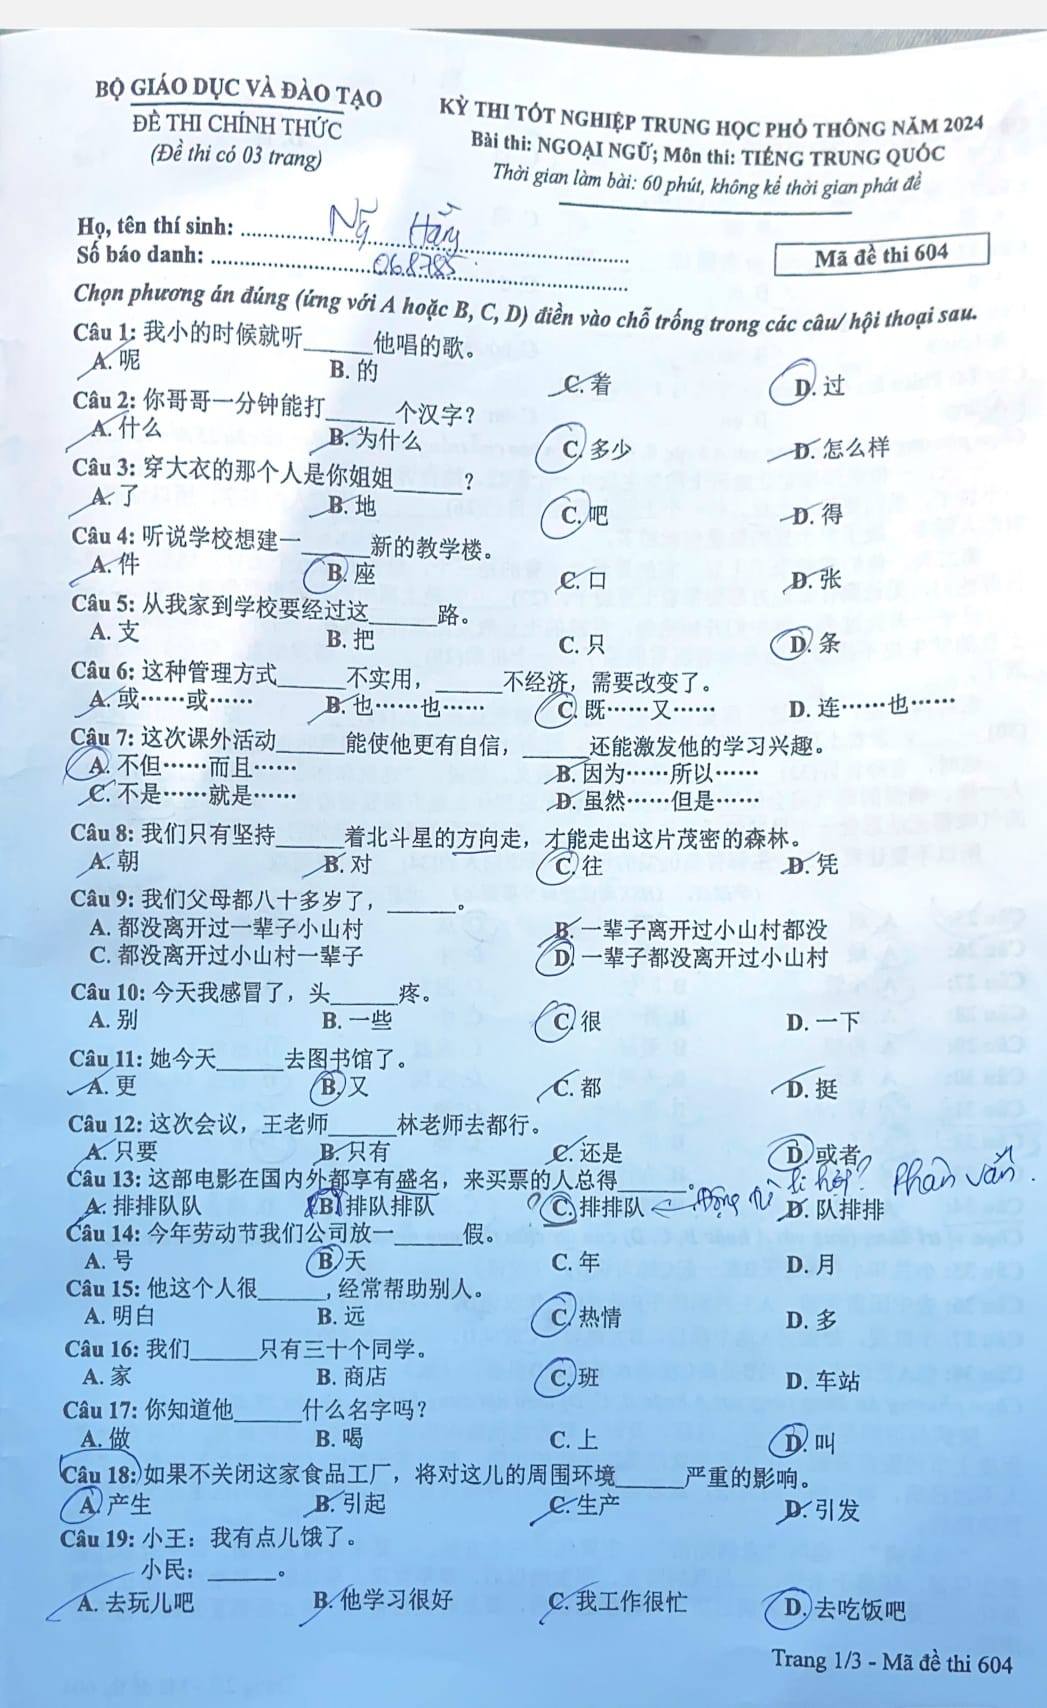 BỘ GIÁO DỤC VÀ ĐÀO TẠO
ĐỀ THI CHÍNH THỨC
(Đề thi có 03 trang)
KỲ THI TỐT NGHIỆP TRUNG HỌC PHỔ THÔNG NĂM 2024
Bài thi: NGOẠI NGỮ; Môn thi: TIẾNG TRUNG QUỐC
Thời gian làm bài: 60 phút, không kể thời gian phát đề
Họ, tên thí sinh: Hân
Số báo danh: 068785
Mã đề thi 604
Chọn phương án đúng (ứng với A hoặc B, C, D) điền vào chỗ trống trong các câu/ hội thoại sau.
Câu 1: 我小的时候就听______他唱的歌。
A. 呢 B. 的 C. 着 D. 过
Câu 2: 你哥哥一分钟能打______个汉字?
A. 什么 B. 为什么 C. 多少 D. 怎么样
Câu 3: 穿大衣的那个人是你姐姐______?
A. 了 B. 地 C. 吧 D. 得
Câu 4: 听说学校想建一______新的教学楼。
A. 件 B. 座 C. 口 D. 张
Câu 5: 从我家到学校要经过这______路。
A. 支 B. 把 C. 只 D. 条
Câu 6: 这种管理方式______不实用，______不经济，需要改变了。
A. 或……或…… B. 也……也…… C. 既……又…… D. 连……也……
Câu 7: 这次课外活动______能使他更有自信，______还能激发他的学习兴趣。
A. 不但……而且…… B. 因为……所以……
C. 不是……就是…… D. 虽然……但是……
Câu 8: 我们只有坚持______着北斗星的方向走，才能走出这片茂密的森林。
A. 朝 B. 对 C. 往 D. 凭
Câu 9: 我们父母都八十多岁了，______。
A. 都没离开过一辈子小山村 B. 一辈子离开过小山村都没
C. 都没离开过小山村一辈子 D. 一辈子都没离开过小山村
Câu 10: 今天我感冒了，头______疼。
A. 别 B. 一些 C. 很 D. 一下
Câu 11: 她今天______去图书馆了。
A. 更 B. 又 C. 都 D. 挺
Câu 12: 这次会议，王老师______林老师去都行。
A. 只要 B. 只有 C. 还是 D. 或者
Câu 13: 这部电影在国内外都享有盛名，来买票的人总得______。
Động từ li hợp? Phân vân
A. 排排队队 B. 排队排队 C. 排排队 D. 队排排
Câu 14: 今年劳动节我们公司放一______假。
A. 号 B. 天 C. 年 D. 月
Câu 15: 他这个人很______, 经常帮助别人。
A. 明白 B. 远 C. 热情 D. 多
Câu 16: 我们______只有三十个同学。
A. 家 B. 商店 C. 班 D. 车站
Câu 17: 你知道他______什么名字吗?
A. 做 B. 喝 C. 上 D. 叫
Câu 18: 如果不关闭这家食品工厂，将对这儿的周围环境______严重的影响。
A. 产生 B. 引起 C. 生产 D. 引发
Câu 19: 小王：我有点儿饿了。
小民：______。
A. 去玩儿吧 B. 他学习很好 C. 我工作很忙 D. 去吃饭吧
Trang 1/3 - Mã đề thi 604